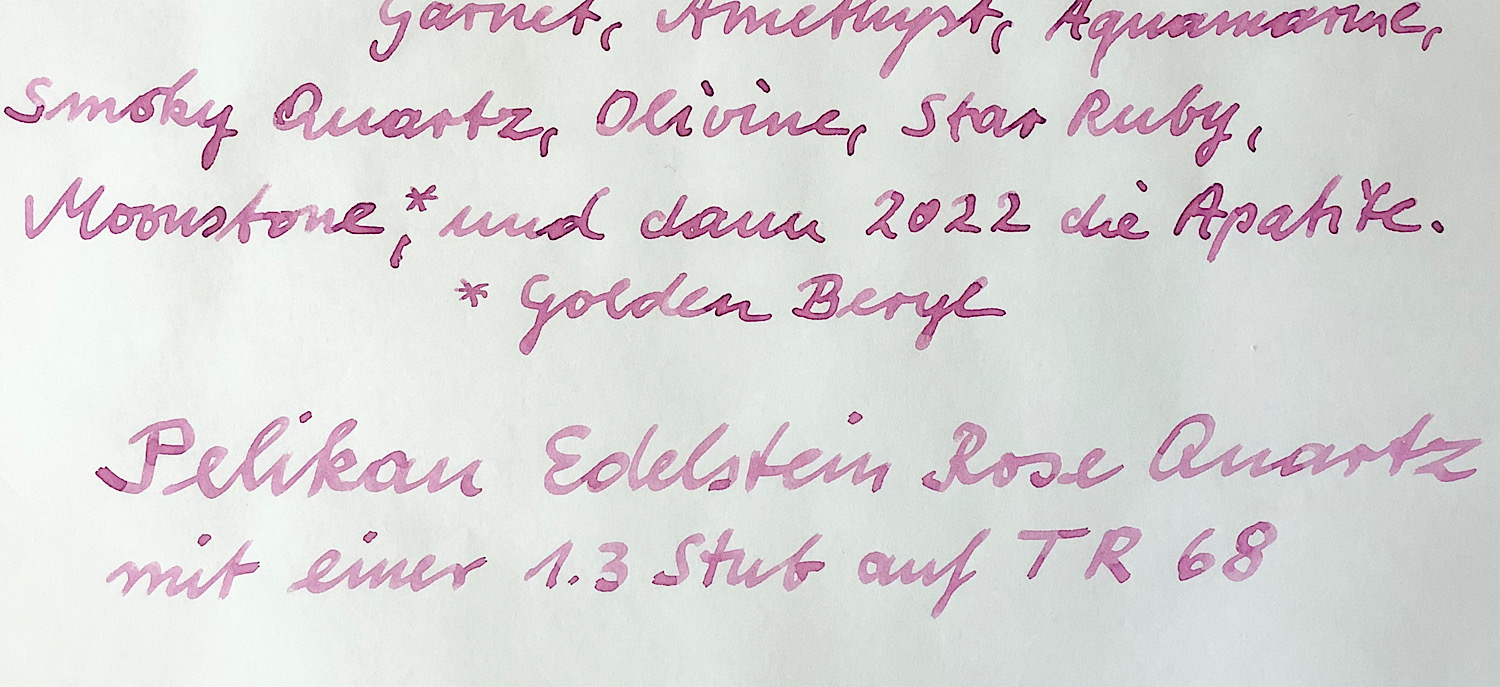 Garnet, Amethyst, Aquamarine,
Smoky Quartz, Olivine, Star Ruby,
Moonstone,* und dann 2022 die Apatite.
* Golden Beryl
Pelikan Edelstein Rose Quartz
mit einer 1.3 Stub auf TR 68